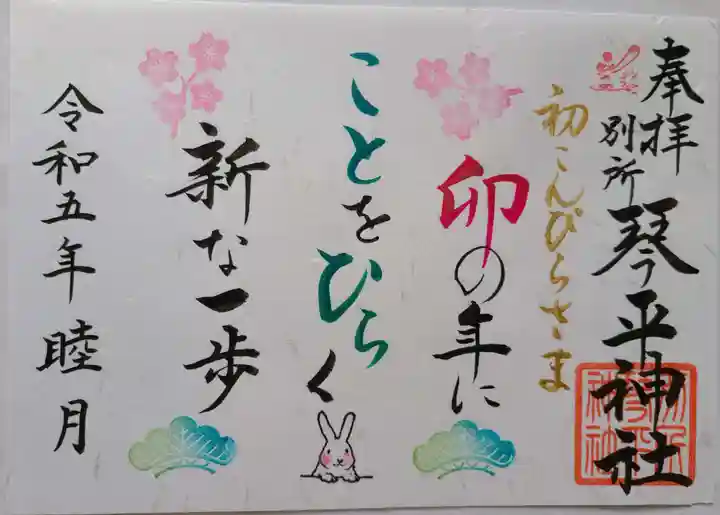 奉拝
別所
琴平神社
初こんぴらさま
卯の年に
ことをひらく
新な一歩
令和五年 睦月